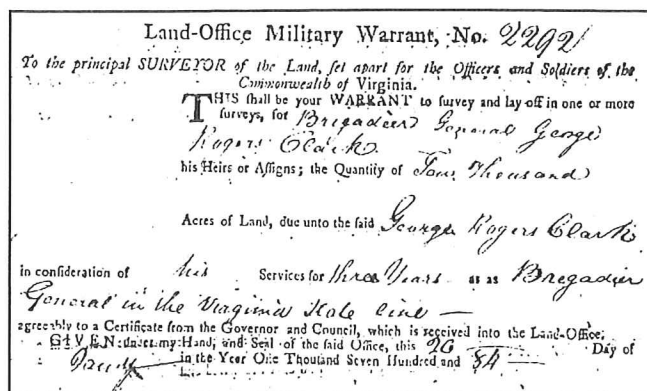 Land-Office Military Warrant, No. 2292
To the principal SURVEYOR of the Land, set apart for the Officers and Soldiers of the
Commonwealth of Virginia.
THIS shall be your WARRANT to survey and lay off in one or more
surveys, for Brigadier General George
Rogers Clark
his Heirs or Assigns; the Quantity of
Thousand
Acres of Land, due unto the said George Rogers Clark
in consideration of his Services for three Years as as Bregadier
General in the Virginia State line —
agreeably to a Certificate from the Governor and Council, which is received into the Land-Office.
GIVEN under my Hand, and Seal of the said Office, this 20 Day of
Jany in the Year One Thousand Seven Hundred and 84